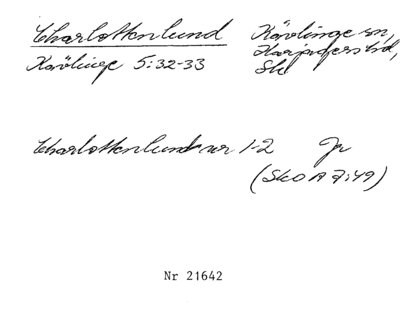 Charlottenlund Kävlinge sn,
Kävlinge 5:32-33 Harjagers hd,
Sk
Charlottenlund nr 1-2 Jr
(Sko A 7:49)
Nr 21642